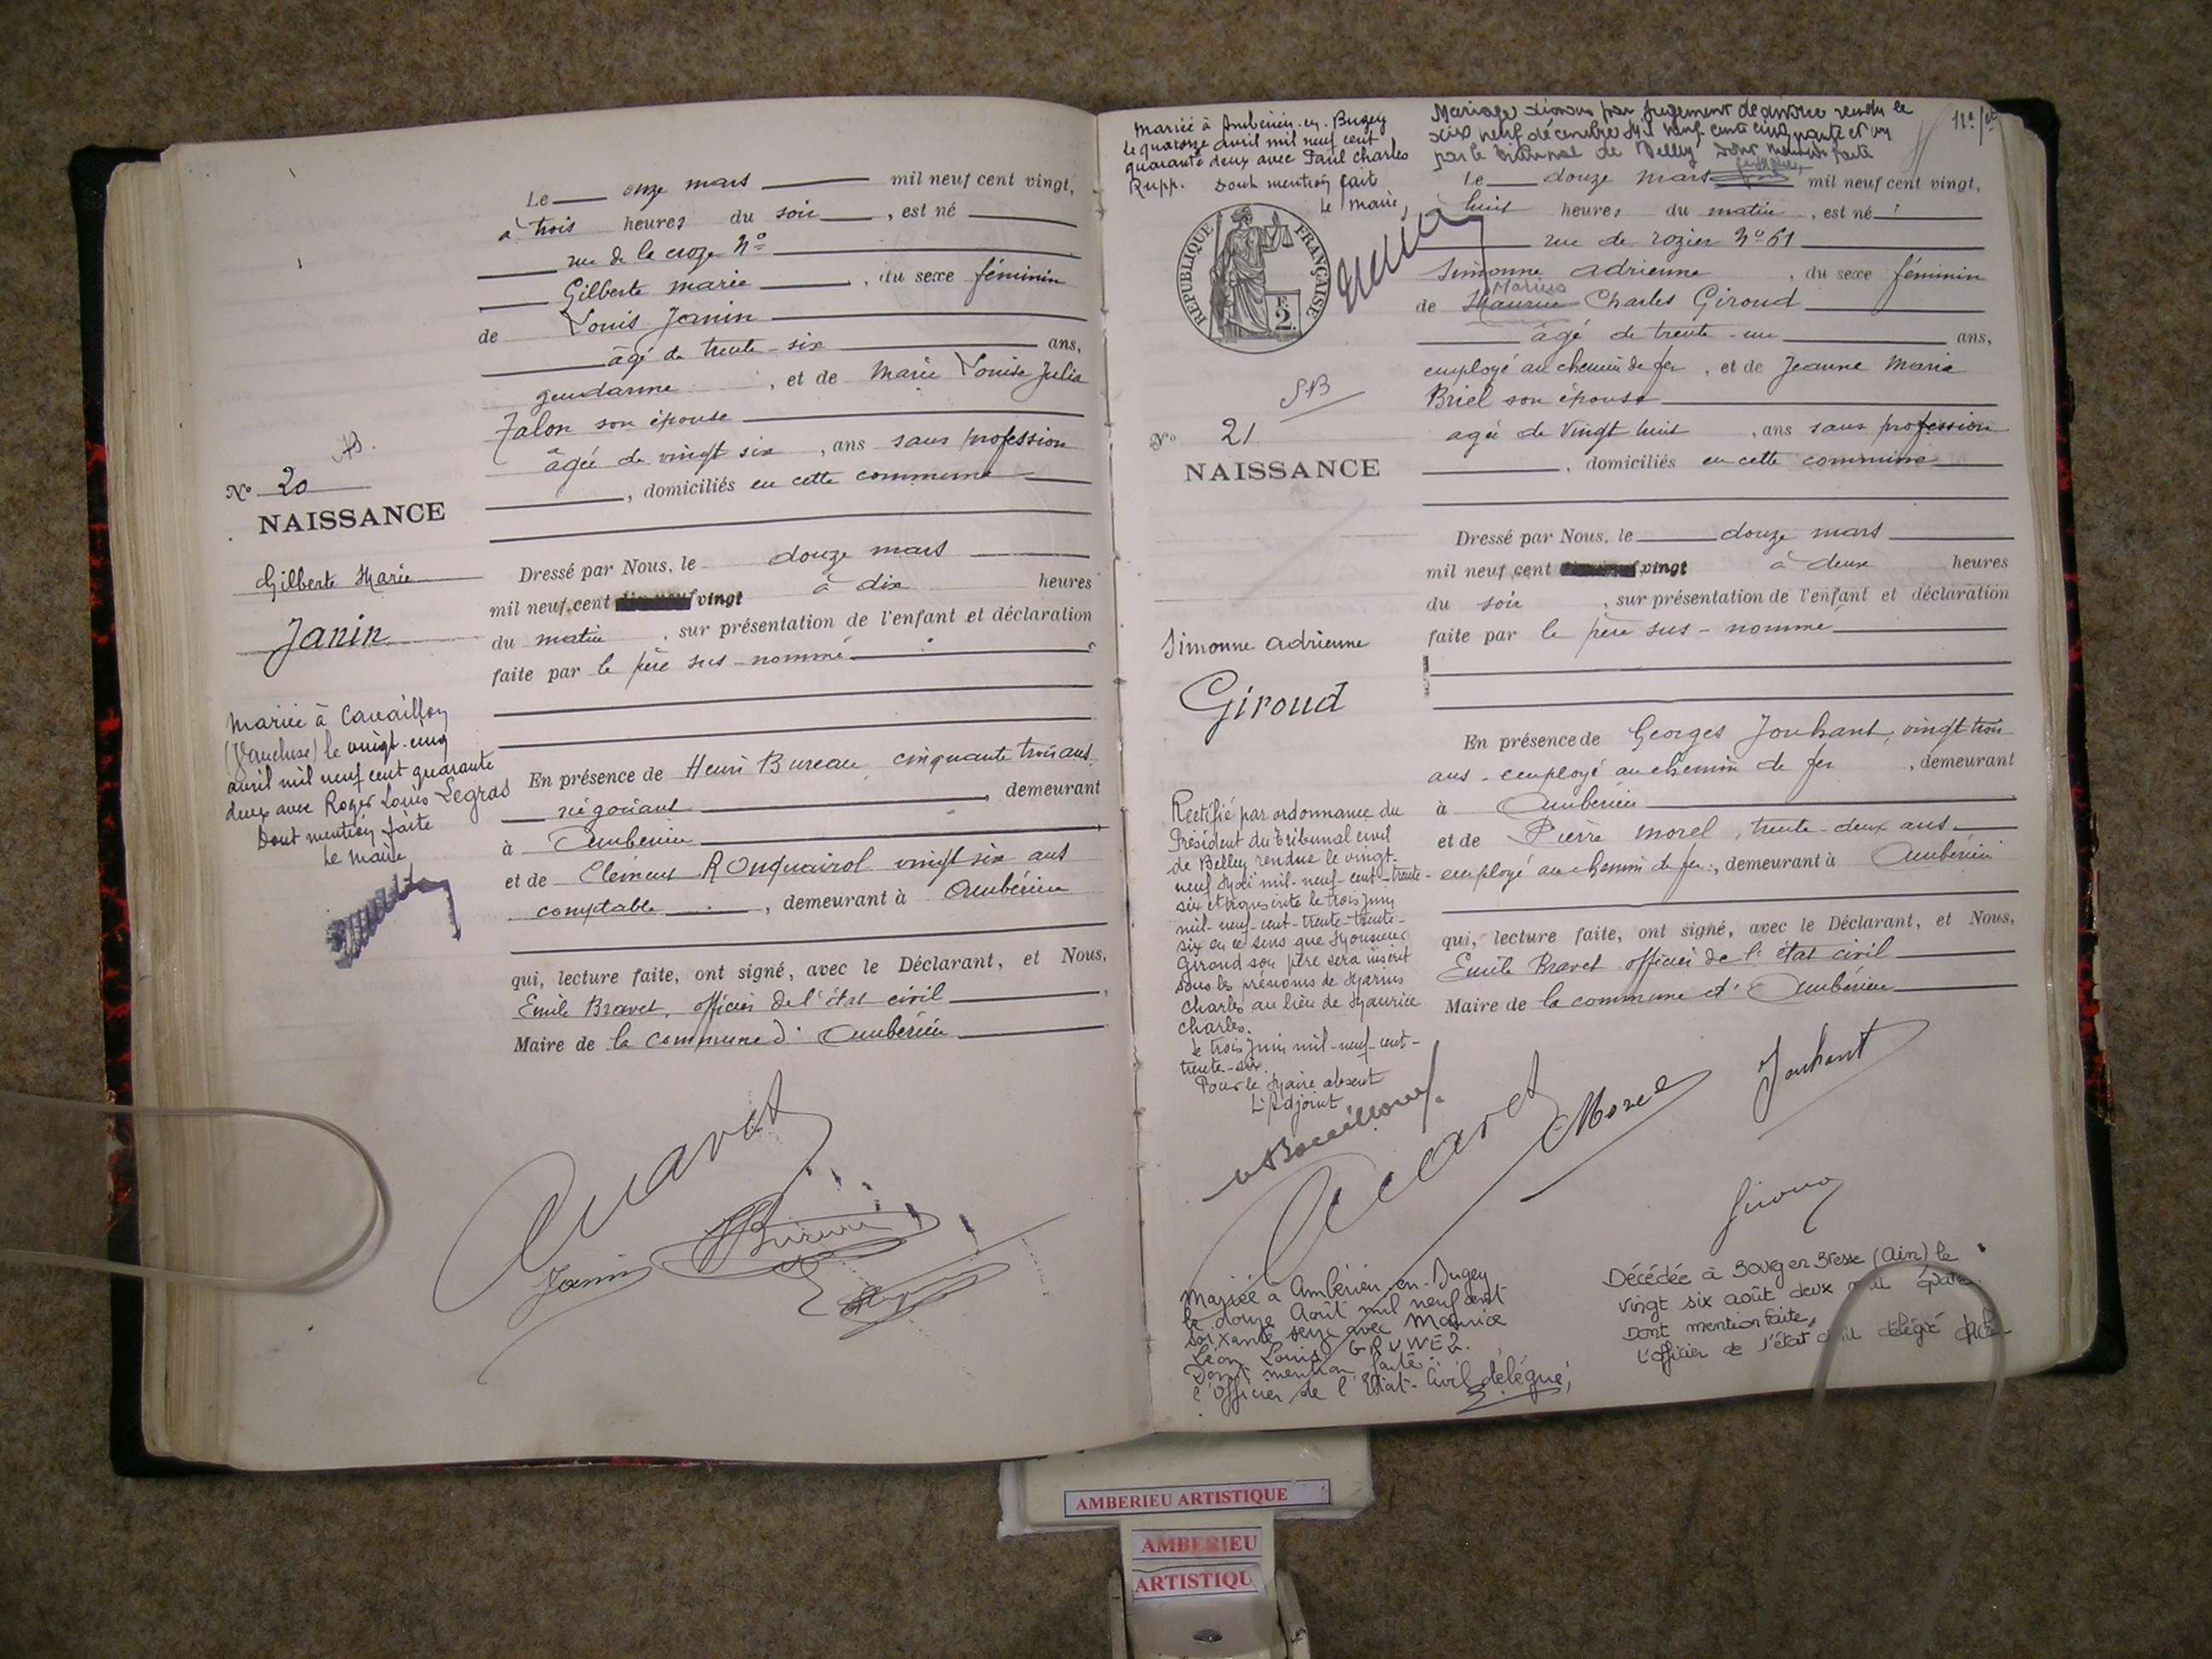 Le onze mars mil neuf cent vingt,
à trois heures du soir, est né
rue de la croze No
Gilberte Marie, du sexe féminin
de Louis Janin
âgé de trente-six ans,
gendarme, et de Marie Louise Julia
Talon son épouse
âgée de vingt six, ans sans profession
, domiciliés en cette commune
No 20
NAISSANCE
Gilberte Marie
Janin
Dressé par Nous, le douze mars
mil neuf cent vingt à dix heures
du matin, sur présentation de l'enfant et déclaration
faite par le père sus-nommé
Mariée à Cavaillon
(Vaucluse) le vingt-cinq
avril mil neuf cent quarante
deux avec Roger Louis Legras
Dont mention faite
Le Maire
En présence de Henri Bureau, cinquante trois ans
négociant, demeurant
à Ambérieu
et de Clément Rouquairol vingt six ans
comptable, demeurant à Ambérieu
qui, lecture faite, ont signé, avec le Déclarant, et Nous,
Emile Bravet, officier de l'état civil
Maire de la commune d' Ambérieu
Bravet
Janin
Bureau
Mariée à Ambérieu-en-Bugey
le quatorze avril mil neuf cent
quarante deux avec Paul Charles
Rupp. Dont mention fait
le maire,
Mariage dissous par jugement de divorce rendu le
dix neuf décembre mil neuf cent cinquante et un
par le tribunal de Belley dont mention faite
RÉPUBLIQUE FRANÇAISE
F.
2.
SB
No 21
NAISSANCE
Simonne Adrienne
Giroud
Le douze mars mil neuf cent vingt,
à huit heures du matin, est né
rue de rozier No 61
Simonne Adrienne, du sexe féminin
Marius
de Maurice Charles Giroud
âgé de trente-un ans,
employé au chemin de fer, et de Jeanne Marie
Briel son épouse
agée de vingt huit, ans sans profession
, domiciliés en cette commune
Dressé par Nous, le douze mars
mil neuf cent vingt à deux heures
du soir, sur présentation de l'enfant et déclaration
faite par le père sus-nommé
En présence de Georges Jouhant, vingt trois
ans - employé au chemin de fer, demeurant
à Ambérieu
et de Pierre Morel, trente-deux ans
employé au chemin de fer, demeurant à Ambérieu
qui, lecture faite, ont signé, avec le Déclarant, et Nous,
Emile Bravet officier de l'état civil
Maire de la commune d' Ambérieu
Rectifié par ordonnance du
Président du tribunal civil
de Belley rendue le vingt-
neuf Mai mil-neuf-cent-trente-
six et transcrite le trois juin
mil-neuf-cent-trente-trente-
six en ce sens que Monsieur
Giroud son père sera inscrit
sous les prénoms de Marius
Charles au lieu de Maurice
Charles.
Le trois juin mil-neuf-cent-
trente-six.
Pour le Maire absent
L'Adjoint
Bravet
Morel
Jouhant
Giroud
Mariée à Ambérieu-en-Bugey
le douze Août mil neuf cent
soixante seize avec Maurice
Léon Louis GRUWEZ.
Dont mention faite.
l'Officier de l'Etat-Civil délégué,
Décédée à Bourg en Bresse (Ain) le
vingt six août deux mil quatre.
Dont mention faite,
L'officier de l'état civil délégué
AMBERIEU ARTISTIQUE
AMBERIEU
ARTISTIQU